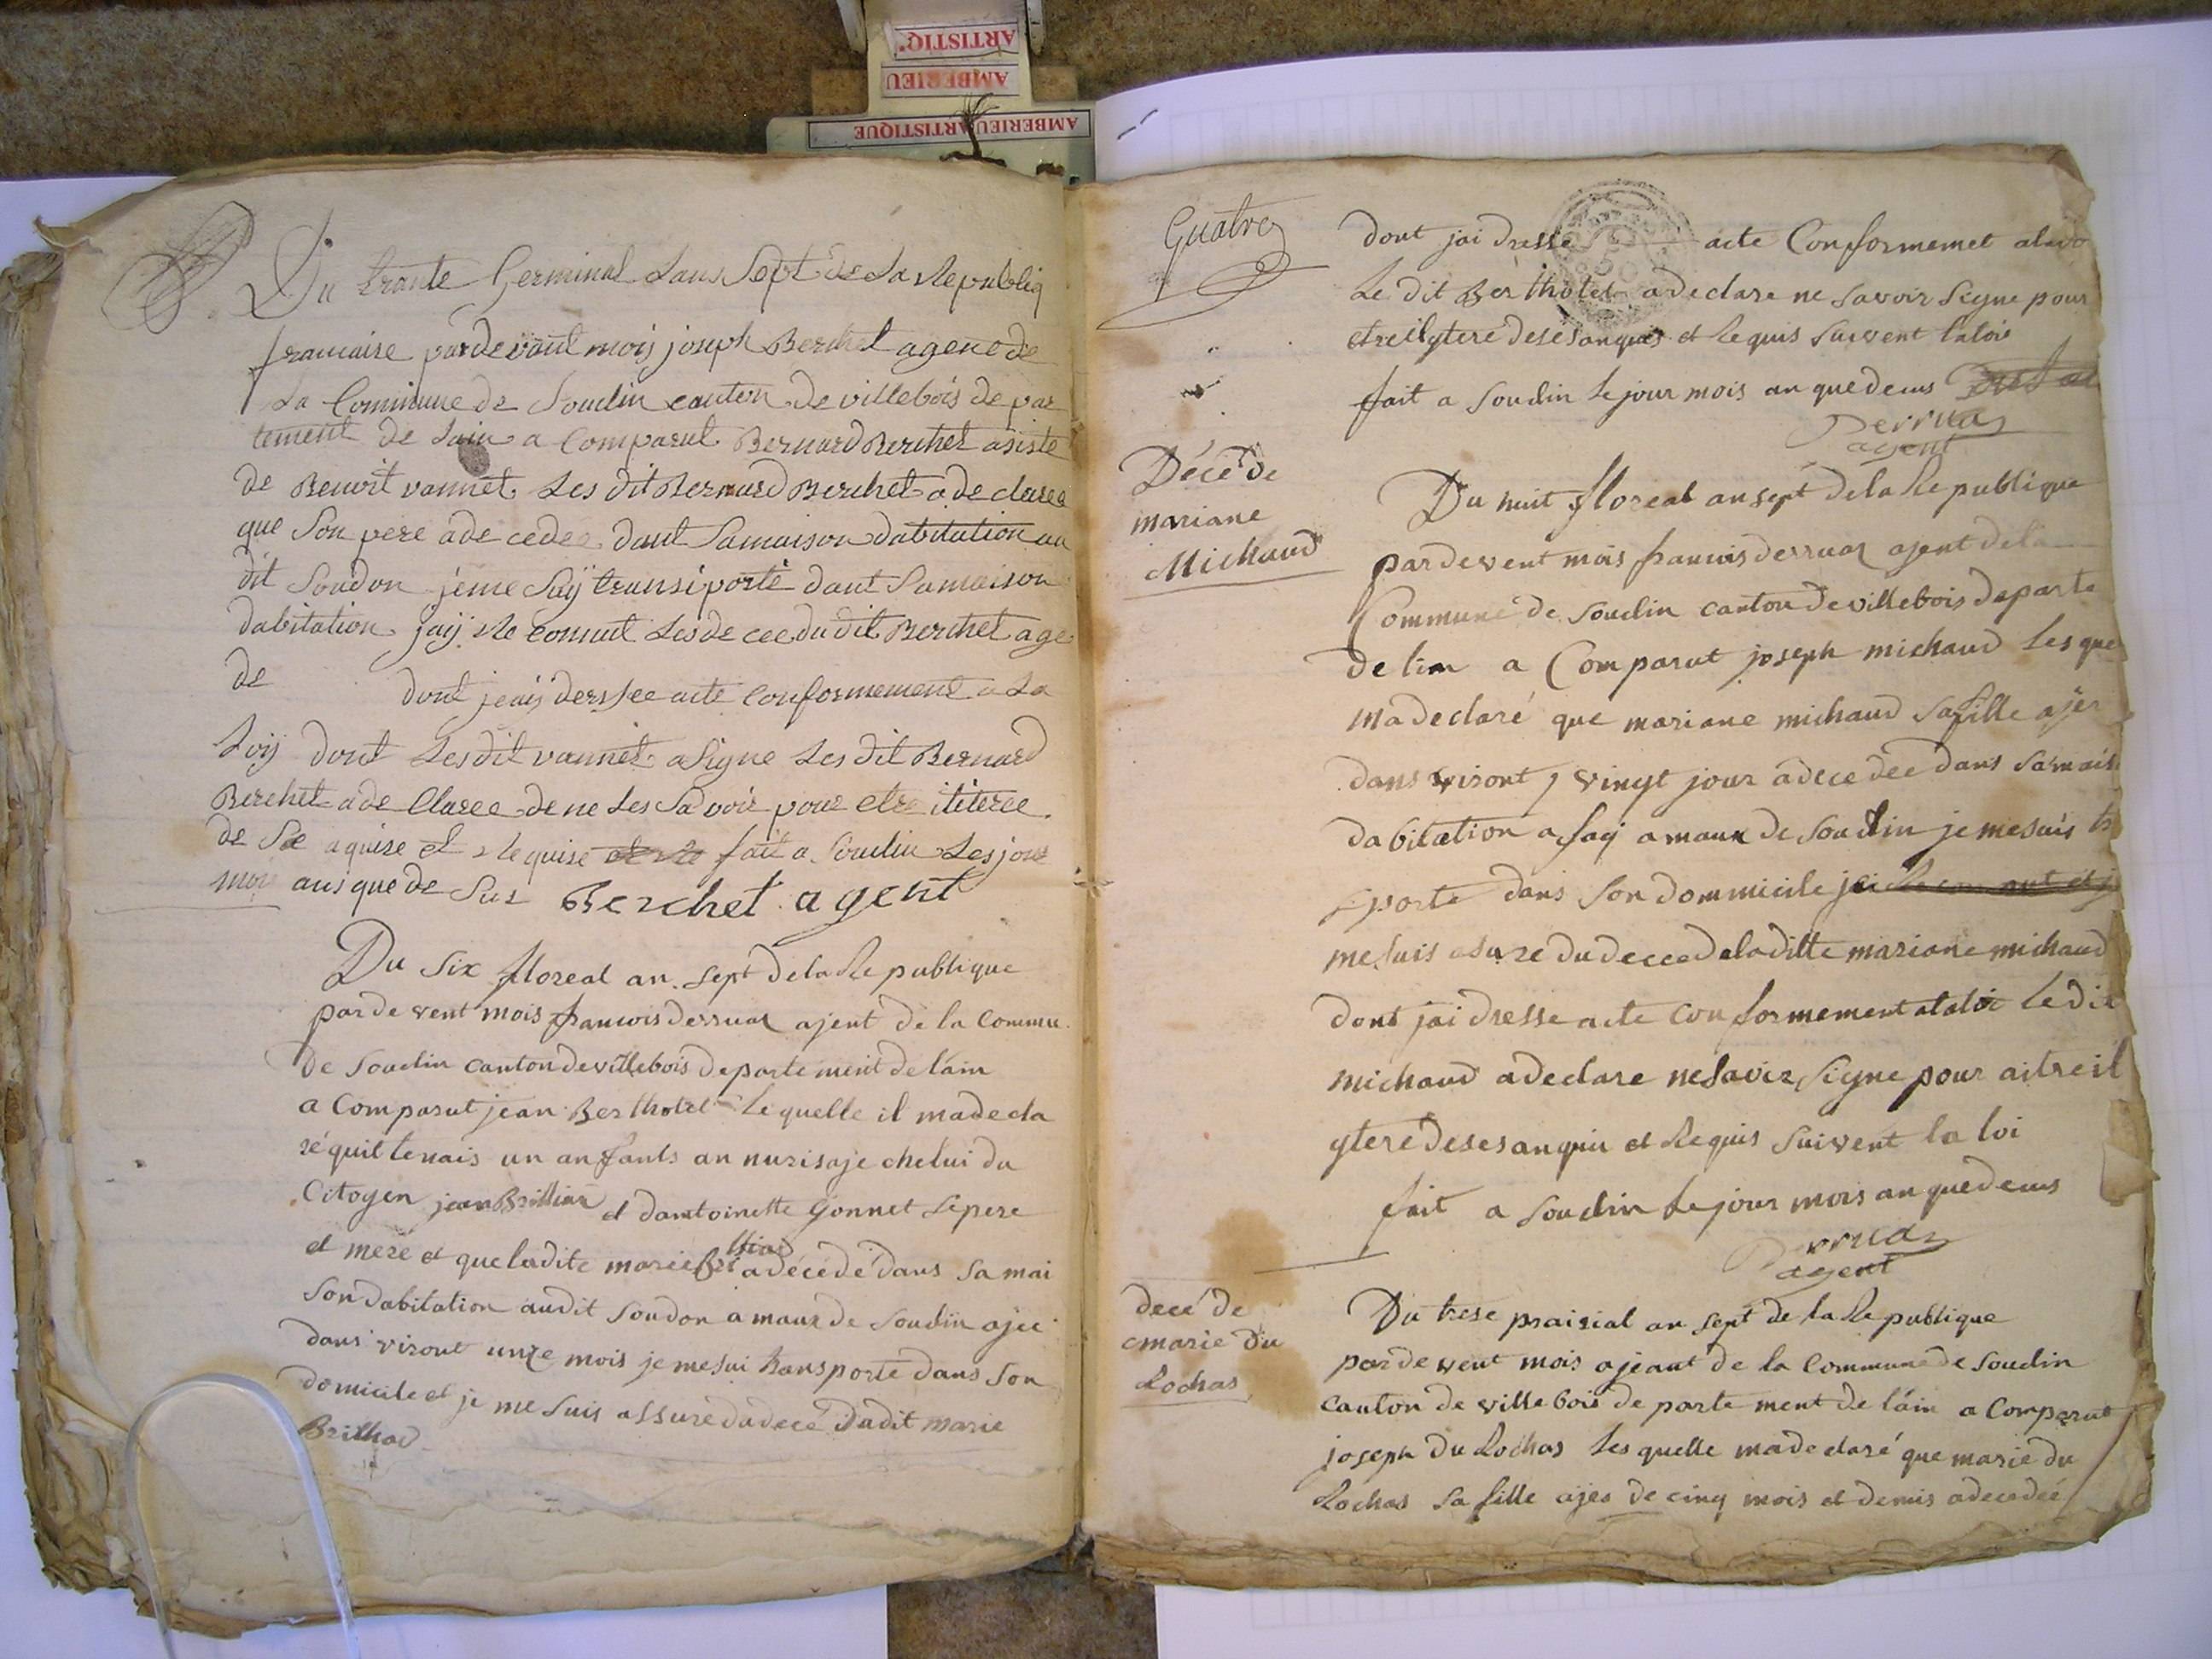 ARTISTIQ'
AMBERIEU
AMBERIEU ARTISTIQUE
Du trante Germinal Lans Sept de La Republiq
francaise pardevant moij joseph Berchet agene de
La Commune de Soudin canton de villebois depar
tement de Lain a Comparut Bernard Berchet asiste
de Benoit vannet Les dit Bernard Berchet a de claree
que Son pere a de cedee dant Samaison dabitation au
dit Soudon jeme Suij transiporté dant Samaison
dabitation jaij Re connut Les de cee du dit Berchet age
de dont jeaij derssee acte conformement a La
Loij dont Lesdit vannet a Signe Les dit Bernard
Berchet a de Claree de ne Les Savoir pour etre ititeree
de Se aquise et Requise fait a Soudin Les jour
mois ans que de Sus Berchet agent
Du Six floreal an Sept de la Re publique
par de vent mois francois derruaz ajent de la Commu
de Soudin canton de villebois departement de lain
a Comparut jean Berthotet Le quelle il ma de cla
ré quil tenais un anfants an nurisaje chelui du
Citoyen jean Brillian et dantoinette Gonnet Le pere
et mere et que ladite marie Brilliad a décédé dans Sa mai
Son dabitation audit Soudon amaux de Soudin ajee
dans viront unze mois je me sui transporte dans Son
domicile et je me Suis assuré dudecé dudit marie
Brilliad
Quatre
dont jai dresse acte Conformemet alavo
Le dit Berthotet a declare ne Savoir Signe pour
etreilytere desesanquis et Requis Suivent laloi
fait a Soudin Le jour mois an quedeius
Derruaz
agent
Décé de
mariane
Michaud
Du huit floreal an sept dela Re publique
pardevent mois francois derruaz ajent dela
Commune de Soudin canton de villebois departe
de lin a Comparut joseph michaud Les que
madeclaré que mariane michaud Safille ajer
dans viront vingt jour adecedée dans Samais
dabitation a faij amaux de Soudin je mesuis tr
sporte dans Son dommicile jai
me Suis asure dudeced eladitte mariane michaud
dont jai dresse acte conformement alaloi Ledit
michaud adeclare ne Savoir Signe pour aitreil
yterédesesanquis et Requis Suivent la loi
fait a Soudin Le jour mois an quedeus
Derruaz
agent
decé de
marie du
Rochas
Du trese prairial an Sept de la Re publique
pardevent mois ajeant de la Commune de Soudin
canton de villebois de parte ment de lain a Comparut
joseph du Rochas Les quelle ma declaré que marie du
Rochas Sa fille ajes de cinq mois et demis adecedée